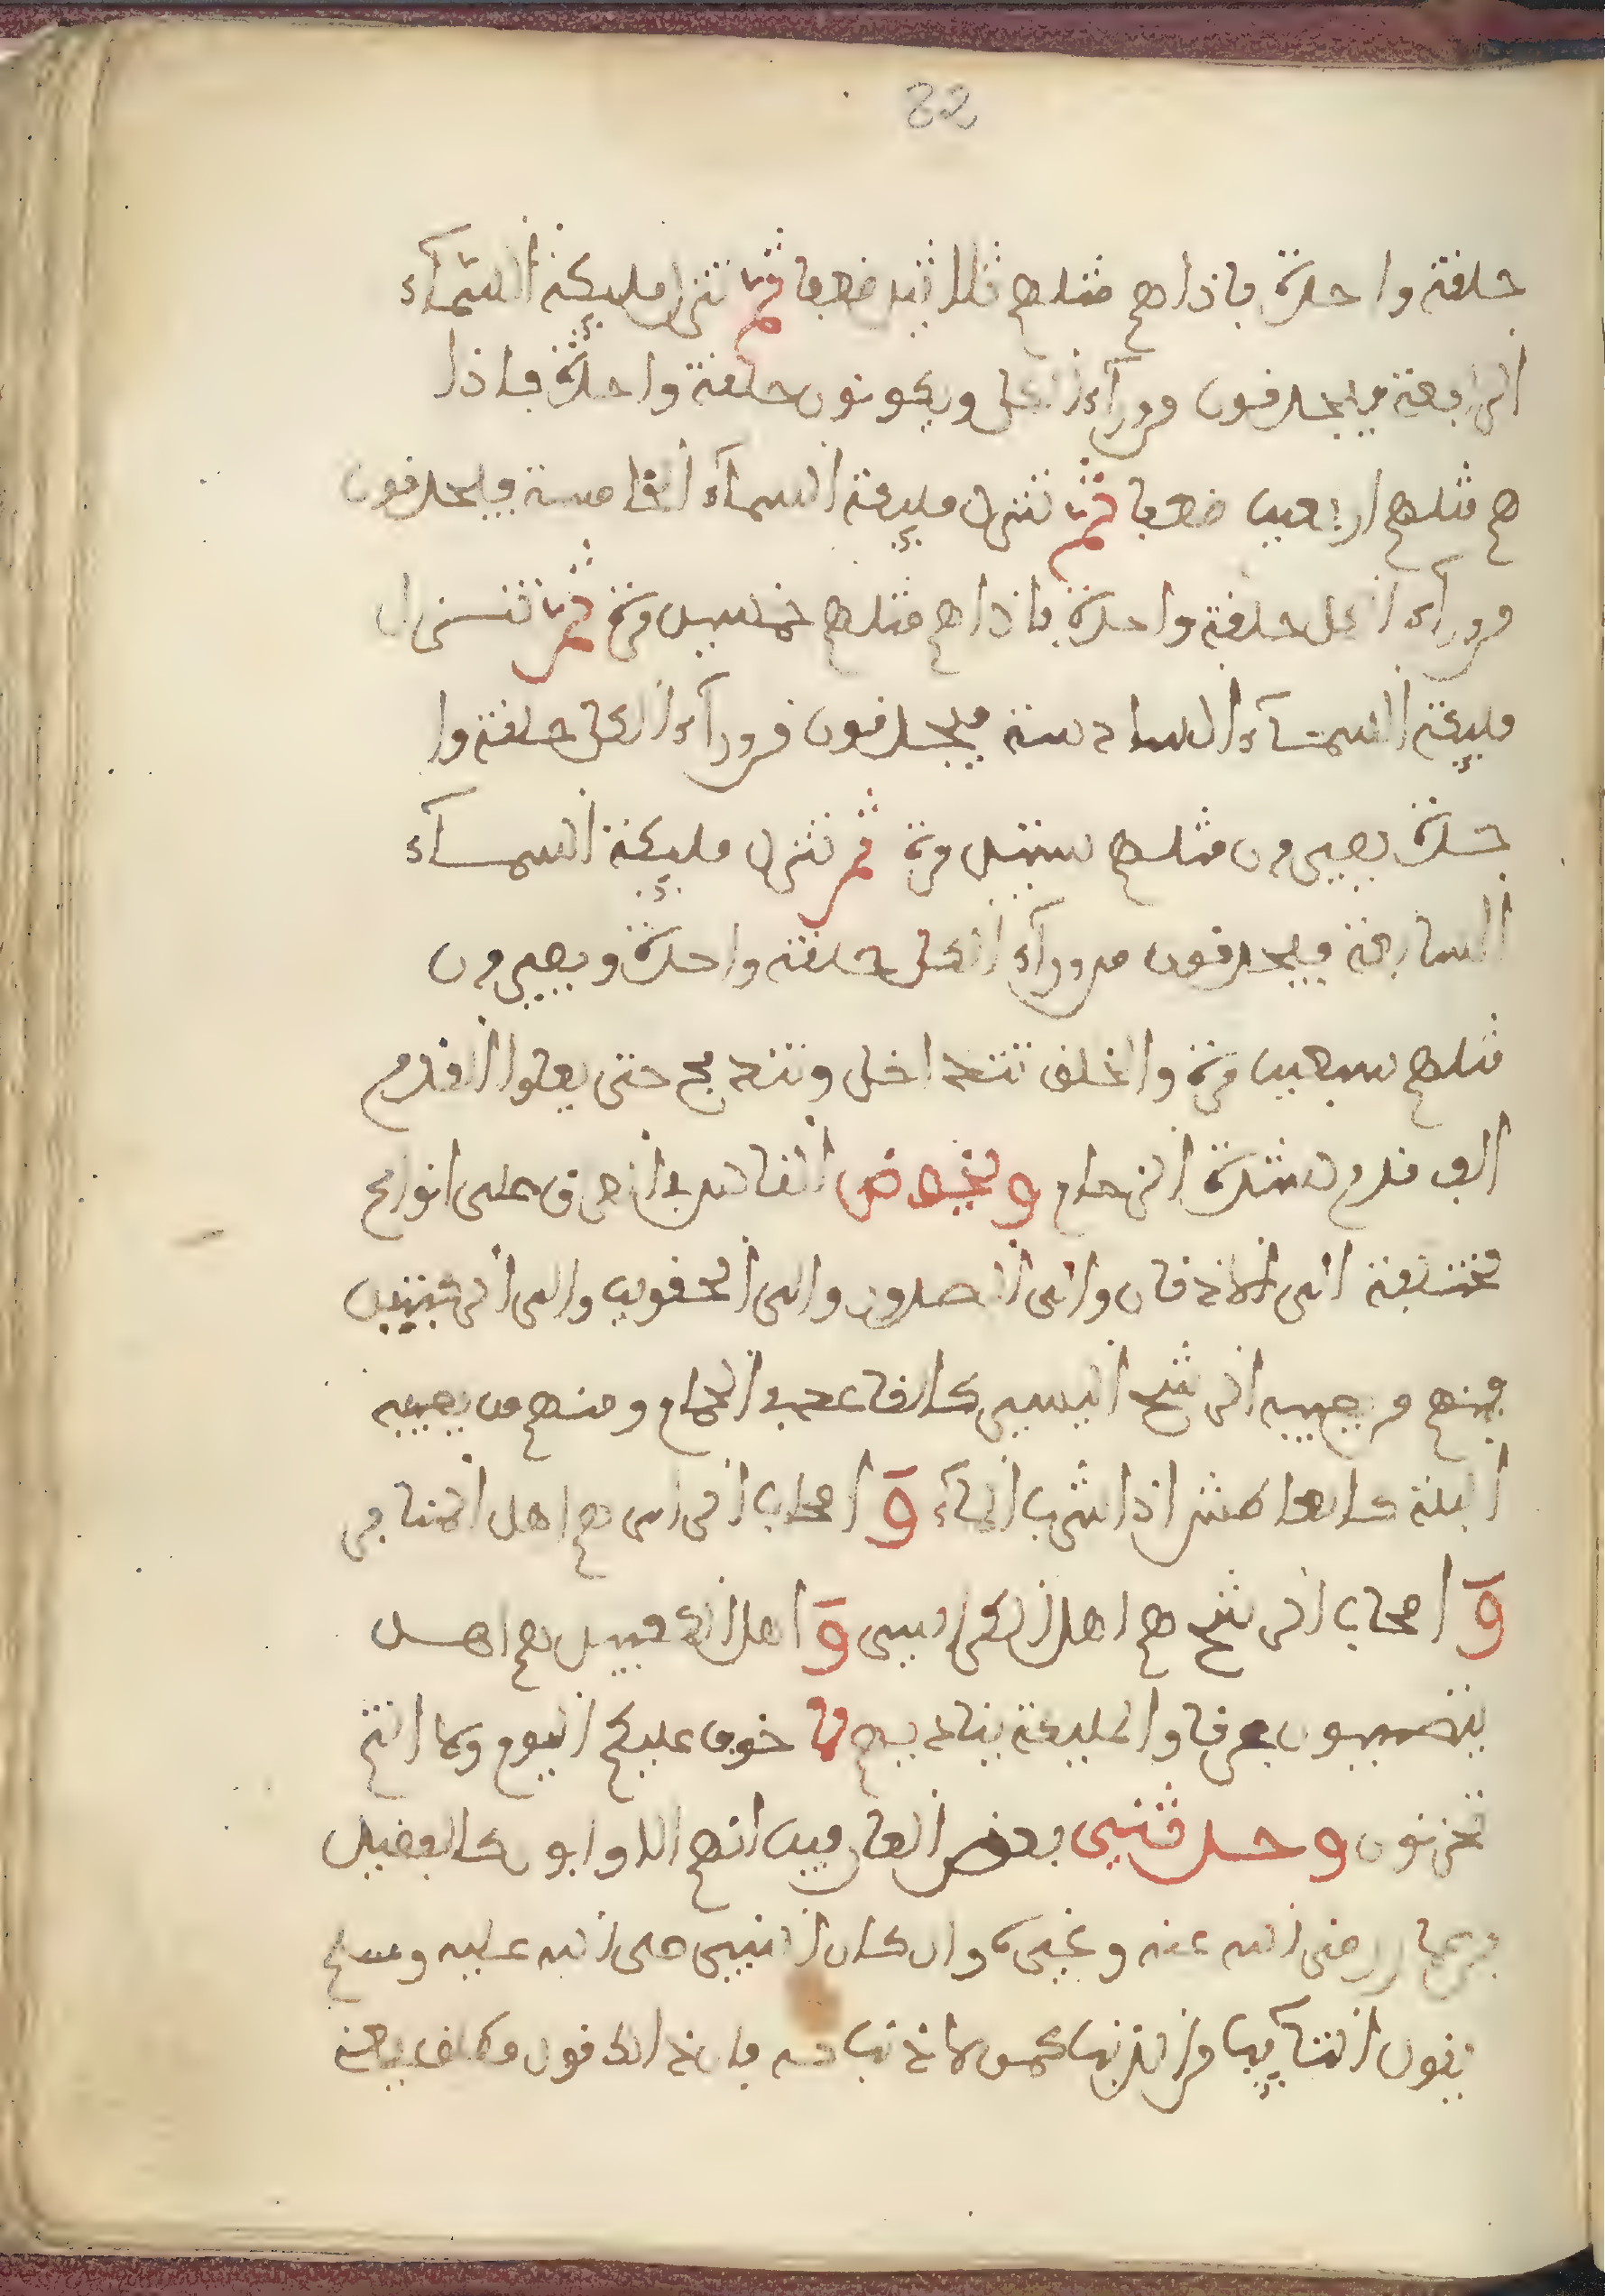 22
حلقة واحدة فاذاهم مثلهم ثلاثين ضعفا ثم تنزل مليكة السمآء
الرابعة فيحدقون من ورآء الكل ويكونون حلقة واحدة فاذا
هم مثلهم اربعين ضعفا ثم تنزل مليكة السمآء الخامسة فيحدقون
من ورآء الكل حلقة واحدة فاذاهم مثلهم خمسين مرة ثم تنزل
مليكة السمآء السادسة فيحدقون من ورآء الكل حلقة وا
حدة يصيرون مثلهم ستين مرة ثم تنزل مليكة السمآء
السابعة فيحدقون من ورآء الكل حلقة واحدة ويصيرون
مثلهم سبعين مرة والخلق تتداخل وتندمج حتى يعلوا القدم
الف قدم لشدة الزحام ويخوض الناس في العرق على انواع
مختلفة الى الاذقان والى الصدور والى الحقوين والى الركبتين
فمنهم من يصيبه الرشح اليسير كالقاعد في الحمام ومنهم من يصيبه
البلة كالعاطش اذا شرب المآء و اصحاب الراس هم اهل المنابر
و اصحاب الرشح هم اهل الكراسي و اهل الكعبين هم اهل
ينصبون عرقا والمليكة يناديهم لا خوف عليكم اليوم ولا انتم
تحزنون وحدثني بعض العارفين انهم الاوابون كالفضيل
بن عياض رضى الله عنه وغيره وان كان النبي صلى الله عليه وسلم
يقول التآيب من الذنب كمن لا ذنب له